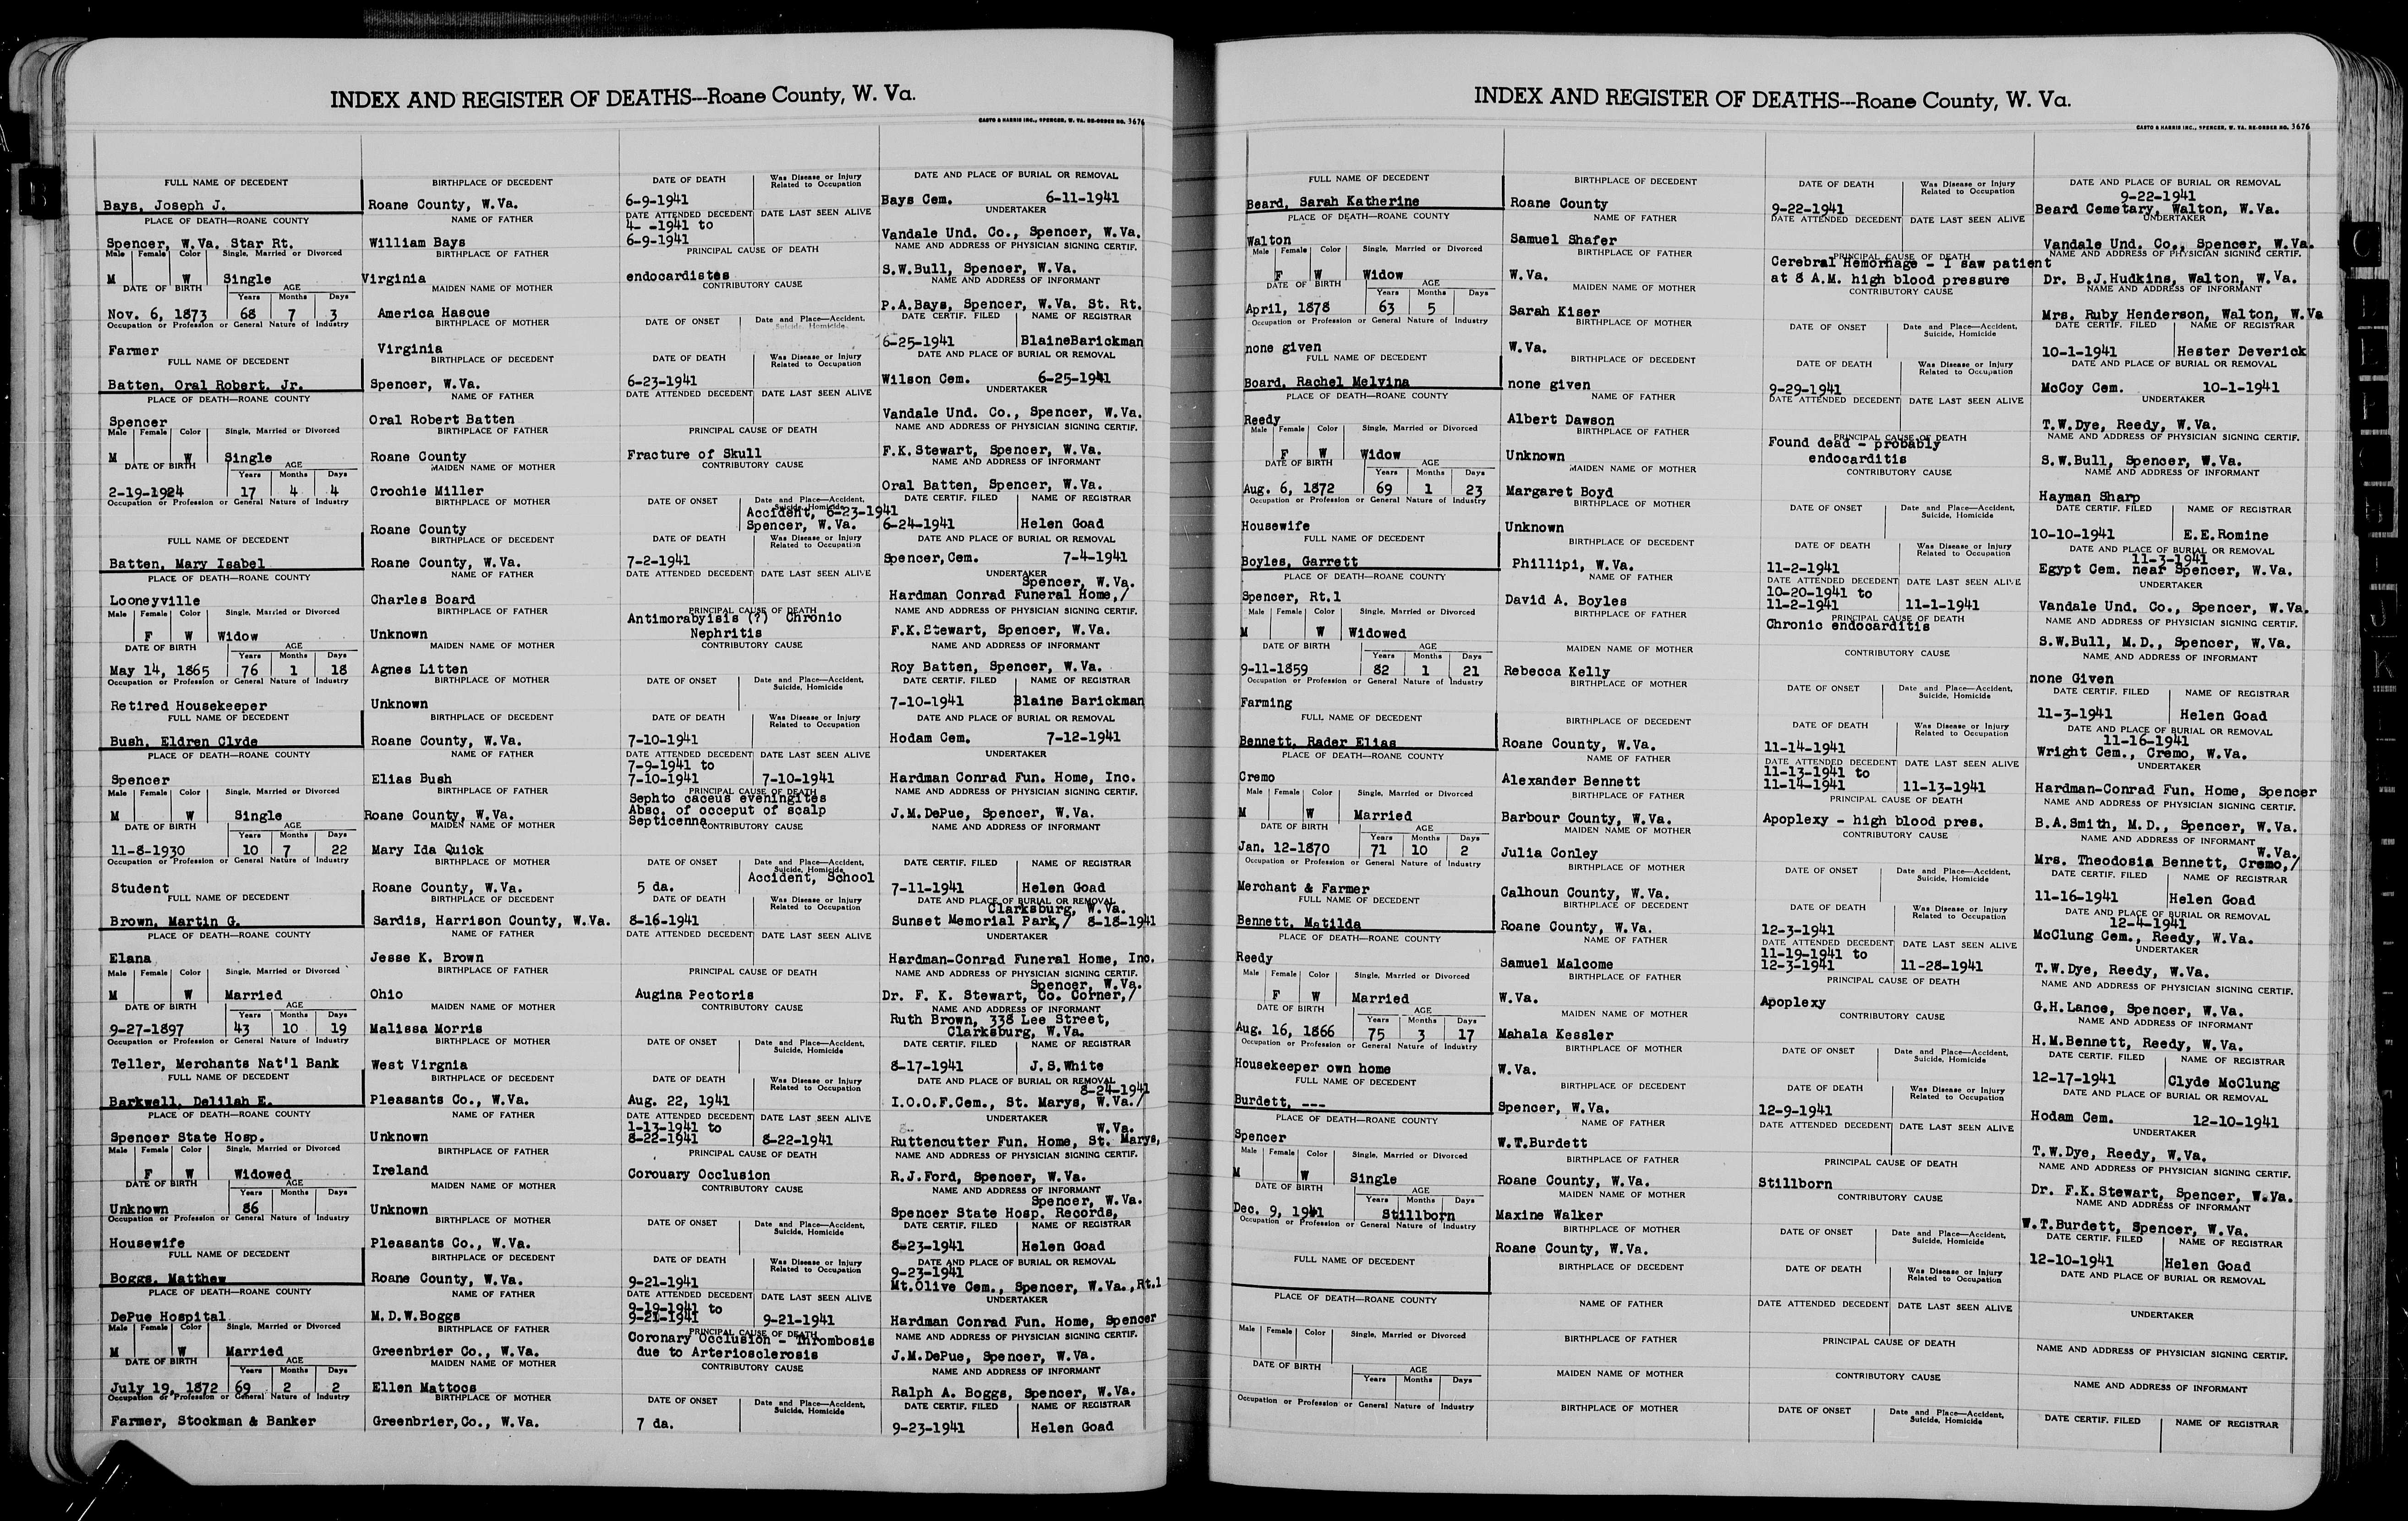 INDEX AND REGISTER OF DEATHS---Roane County, W. Va.
CASTO & HARRIS INC., SPENCER, W. VA. RE-ORDER NO. 3676
FULL NAME OF DECEDENT BIRTHPLACE OF DECEDENT DATE OF DEATH Was Disease or Injury Related to Occupation DATE AND PLACE OF BURIAL OR REMOVAL
Bays, Joseph J. Roane County, W.Va. 6-9-1941 Bays Cem. 6-11-1941
PLACE OF DEATH—ROANE COUNTY NAME OF FATHER DATE ATTENDED DECEDENT DATE LAST SEEN ALIVE UNDERTAKER
4- -1941 to
Spencer, W.Va. Star Rt. William Bays 6-9-1941 Vandale Und. Co., Spencer, W.Va.
Male Female Color Single, Married or Divorced BIRTHPLACE OF FATHER PRINCIPAL CAUSE OF DEATH NAME AND ADDRESS OF PHYSICIAN SIGNING CERTIF.
M W Single Virginia endocardistes S.W.Bull, Spencer, W.Va.
DATE OF BIRTH AGE Years Months Days MAIDEN NAME OF MOTHER CONTRIBUTORY CAUSE NAME AND ADDRESS OF INFORMANT
Nov. 6, 1873 68 7 3 America Hascue P.A.Bays, Spencer, W.Va. St. Rt.
Occupation or Profession or General Nature of Industry BIRTHPLACE OF MOTHER DATE OF ONSET Date and Place—Accident, Suicide, Homicide DATE CERTIF. FILED NAME OF REGISTRAR
Farmer Virginia 6-25-1941 BlaineBarickman
FULL NAME OF DECEDENT BIRTHPLACE OF DECEDENT DATE OF DEATH Was Disease or Injury Related to Occupation DATE AND PLACE OF BURIAL OR REMOVAL
Batten, Oral Robert, Jr. Spencer, W.Va. 6-23-1941 Wilson Cem. 6-25-1941
PLACE OF DEATH—ROANE COUNTY NAME OF FATHER DATE ATTENDED DECEDENT DATE LAST SEEN ALIVE UNDERTAKER
Spencer Oral Robert Batten Vandale Und. Co., Spencer, W.Va.
Male Female Color Single, Married or Divorced BIRTHPLACE OF FATHER PRINCIPAL CAUSE OF DEATH NAME AND ADDRESS OF PHYSICIAN SIGNING CERTIF.
M W Single Roane County Fracture of Skull F.K.Stewart, Spencer, W.Va.
DATE OF BIRTH AGE Years Months Days MAIDEN NAME OF MOTHER CONTRIBUTORY CAUSE NAME AND ADDRESS OF INFORMANT
2-19-1924 17 4 4 Crochie Miller Oral Batten, Spencer, W.Va.
Occupation or Profession or General Nature of Industry BIRTHPLACE OF MOTHER DATE OF ONSET Date and Place—Accident, Suicide, Homicide DATE CERTIF. FILED NAME OF REGISTRAR
Accident, 6-23-1941
Roane County Spencer, W.Va. 6-24-1941 Helen Goad
FULL NAME OF DECEDENT BIRTHPLACE OF DECEDENT DATE OF DEATH Was Disease or Injury Related to Occupation DATE AND PLACE OF BURIAL OR REMOVAL
Batten, Mary Isabel Roane County, W.Va. 7-2-1941 Spencer,Cem. 7-4-1941
PLACE OF DEATH—ROANE COUNTY NAME OF FATHER DATE ATTENDED DECEDENT DATE LAST SEEN ALIVE UNDERTAKER
Spencer, W.Va.
Looneyville Charles Board Hardman Conrad Funeral Home,/
Male Female Color Single, Married or Divorced BIRTHPLACE OF FATHER PRINCIPAL CAUSE OF DEATH NAME AND ADDRESS OF PHYSICIAN SIGNING CERTIF.
Antimorabyisis (?) Chronic
F W Widow Unknown Nephritis F.K.Stewart, Spencer, W.Va.
DATE OF BIRTH AGE Years Months Days MAIDEN NAME OF MOTHER CONTRIBUTORY CAUSE NAME AND ADDRESS OF INFORMANT
May 14, 1865 76 1 18 Agnes Litten Roy Batten, Spencer, W.Va.
Occupation or Profession or General Nature of Industry BIRTHPLACE OF MOTHER DATE OF ONSET Date and Place—Accident, Suicide, Homicide DATE CERTIF. FILED NAME OF REGISTRAR
Retired Housekeeper Unknown 7-10-1941 Blaine Barickman
FULL NAME OF DECEDENT BIRTHPLACE OF DECEDENT DATE OF DEATH Was Disease or Injury Related to Occupation DATE AND PLACE OF BURIAL OR REMOVAL
Bush, Eldren Clyde Roane County, W.Va. 7-10-1941 Hodam Cem. 7-12-1941
PLACE OF DEATH—ROANE COUNTY NAME OF FATHER DATE ATTENDED DECEDENT DATE LAST SEEN ALIVE UNDERTAKER
7-9-1941 to
Spencer Elias Bush 7-10-1941 7-10-1941 Hardman Conrad Fun. Home, Inc.
Male Female Color Single, Married or Divorced BIRTHPLACE OF FATHER PRINCIPAL CAUSE OF DEATH NAME AND ADDRESS OF PHYSICIAN SIGNING CERTIF.
Sephto caceus eveningites
M W Single Roane County, W.Va. Absc. of occeput of scalp J.M.DePue, Spencer, W.Va.
Septicenna
DATE OF BIRTH AGE Years Months Days MAIDEN NAME OF MOTHER CONTRIBUTORY CAUSE NAME AND ADDRESS OF INFORMANT
11-8-1930 10 7 22 Mary Ida Quick
Occupation or Profession or General Nature of Industry BIRTHPLACE OF MOTHER DATE OF ONSET Date and Place—Accident, Suicide, Homicide DATE CERTIF. FILED NAME OF REGISTRAR
Student Roane County, W.Va. 5 da. Accident, School 7-11-1941 Helen Goad
FULL NAME OF DECEDENT BIRTHPLACE OF DECEDENT DATE OF DEATH Was Disease or Injury Related to Occupation DATE AND PLACE OF BURIAL OR REMOVAL
Clarksburg, W.Va.
Brown, Martin G. Sardis, Harrison County, W.Va. 8-16-1941 Sunset Memorial Park,/ 8-18-1941
PLACE OF DEATH—ROANE COUNTY NAME OF FATHER DATE ATTENDED DECEDENT DATE LAST SEEN ALIVE UNDERTAKER
Elana Jesse K. Brown Hardman-Conrad Funeral Home, Inc.
Male Female Color Single, Married or Divorced BIRTHPLACE OF FATHER PRINCIPAL CAUSE OF DEATH NAME AND ADDRESS OF PHYSICIAN SIGNING CERTIF.
Spencer, W.Va.
M W Married Ohio Augina Pectoris Dr. F. K. Stewart, Co. Corner,/
DATE OF BIRTH AGE Years Months Days MAIDEN NAME OF MOTHER CONTRIBUTORY CAUSE NAME AND ADDRESS OF INFORMANT
Ruth Brown, 338 Lee Street,
9-27-1897 43 10 19 Malissa Morris Clarksburg, W.Va.
Occupation or Profession or General Nature of Industry BIRTHPLACE OF MOTHER DATE OF ONSET Date and Place—Accident, Suicide, Homicide DATE CERTIF. FILED NAME OF REGISTRAR
Teller, Merchants Nat'l Bank West Virgnia 8-17-1941 J.S.White
FULL NAME OF DECEDENT BIRTHPLACE OF DECEDENT DATE OF DEATH Was Disease or Injury Related to Occupation DATE AND PLACE OF BURIAL OR REMOVAL
8-24-1941
Barkwell, Delilah E. Pleasants Co., W.Va. Aug. 22, 1941 I.O.O.F.Cem., St. Marys, W.Va./
PLACE OF DEATH—ROANE COUNTY NAME OF FATHER DATE ATTENDED DECEDENT DATE LAST SEEN ALIVE UNDERTAKER
1-13-1941 to W.Va.
Spencer State Hosp. Unknown 8-22-1941 8-22-1941 Ruttencutter Fun. Home, St. Marys,
Male Female Color Single, Married or Divorced BIRTHPLACE OF FATHER PRINCIPAL CAUSE OF DEATH NAME AND ADDRESS OF PHYSICIAN SIGNING CERTIF.
F W Widowed Ireland Corouary Occlusion R.J.Ford, Spencer, W.Va.
DATE OF BIRTH AGE Years Months Days MAIDEN NAME OF MOTHER CONTRIBUTORY CAUSE NAME AND ADDRESS OF INFORMANT
Spencer, W.Va.
Unknown 86 Unknown Spencer State Hosp. Records,
Occupation or Profession or General Nature of Industry BIRTHPLACE OF MOTHER DATE OF ONSET Date and Place—Accident, Suicide, Homicide DATE CERTIF. FILED NAME OF REGISTRAR
Housewife Pleasants Co., W.Va. 8-23-1941 Helen Goad
FULL NAME OF DECEDENT BIRTHPLACE OF DECEDENT DATE OF DEATH Was Disease or Injury Related to Occupation DATE AND PLACE OF BURIAL OR REMOVAL
9-23-1941
Boggs, Matthew Roane County, W.Va. 9-21-1941 Mt.Olive Cem., Spencer, W.Va.,Rt.1
PLACE OF DEATH—ROANE COUNTY NAME OF FATHER DATE ATTENDED DECEDENT DATE LAST SEEN ALIVE UNDERTAKER
9-19-1941 to
DePue Hospital M.D.W.Boggs 9-21-1941 9-21-1941 Hardman Conrad Fun. Home, Spencer
Male Female Color Single, Married or Divorced BIRTHPLACE OF FATHER PRINCIPAL CAUSE OF DEATH NAME AND ADDRESS OF PHYSICIAN SIGNING CERTIF.
Coronary Occlusion - Thrombosis
M W Married Greenbrier Co., W.Va. due to Arteriosclerosis J.M.DePue, Spencer, W.Va.
DATE OF BIRTH AGE Years Months Days MAIDEN NAME OF MOTHER CONTRIBUTORY CAUSE NAME AND ADDRESS OF INFORMANT
July 19, 1872 69 2 2 Ellen Mattocs Ralph A. Boggs, Spencer, W.Va.
Occupation or Profession or General Nature of Industry BIRTHPLACE OF MOTHER DATE OF ONSET Date and Place—Accident, Suicide, Homicide DATE CERTIF. FILED NAME OF REGISTRAR
Farmer, Stockman & Banker Greenbrier,Co., W.Va. 7 da. 9-23-1941 Helen Goad
INDEX AND REGISTER OF DEATHS---Roane County, W. Va.
CASTO & HARRIS INC., SPENCER, W. VA. RE-ORDER NO. 3676
FULL NAME OF DECEDENT BIRTHPLACE OF DECEDENT DATE OF DEATH Was Disease or Injury Related to Occupation DATE AND PLACE OF BURIAL OR REMOVAL
9-22-1941
Beard, Sarah Katherine Roane County 9-22-1941 Beard Cemetary, Walton, W.Va.
PLACE OF DEATH—ROANE COUNTY NAME OF FATHER DATE ATTENDED DECEDENT DATE LAST SEEN ALIVE UNDERTAKER
Walton Samuel Shafer Vandale Und. Co., Spencer, W.Va.
Male Female Color Single, Married or Divorced BIRTHPLACE OF FATHER PRINCIPAL CAUSE OF DEATH NAME AND ADDRESS OF PHYSICIAN SIGNING CERTIF.
Cerebral Hemorhage - I saw patient
F W Widow W.Va. at 8 A.M. high blood pressure Dr. B.J.Hudkins, Walton, W.Va.
DATE OF BIRTH AGE Years Months Days MAIDEN NAME OF MOTHER CONTRIBUTORY CAUSE NAME AND ADDRESS OF INFORMANT
April, 1878 63 5 Sarah Kiser Mrs. Ruby Henderson, Walton, W.Va
Occupation or Profession or General Nature of Industry BIRTHPLACE OF MOTHER DATE OF ONSET Date and Place—Accident, Suicide, Homicide DATE CERTIF. FILED NAME OF REGISTRAR
none given W.Va. 10-1-1941 Hester Deverick
FULL NAME OF DECEDENT BIRTHPLACE OF DECEDENT DATE OF DEATH Was Disease or Injury Related to Occupation DATE AND PLACE OF BURIAL OR REMOVAL
Board, Rachel Melvina none given 9-29-1941 McCoy Cem. 10-1-1941
PLACE OF DEATH—ROANE COUNTY NAME OF FATHER DATE ATTENDED DECEDENT DATE LAST SEEN ALIVE UNDERTAKER
Reedy Albert Dawson T.W.Dye, Reedy, W.Va.
Male Female Color Single, Married or Divorced BIRTHPLACE OF FATHER PRINCIPAL CAUSE OF DEATH NAME AND ADDRESS OF PHYSICIAN SIGNING CERTIF.
Found dead - probably
F W Widow Unknown endocarditis S.W.Bull, Spencer, W.Va.
DATE OF BIRTH AGE Years Months Days MAIDEN NAME OF MOTHER CONTRIBUTORY CAUSE NAME AND ADDRESS OF INFORMANT
Aug. 6, 1872 69 1 23 Margaret Boyd Hayman Sharp
Occupation or Profession or General Nature of Industry BIRTHPLACE OF MOTHER DATE OF ONSET Date and Place—Accident, Suicide, Homicide DATE CERTIF. FILED NAME OF REGISTRAR
Housewife Unknown 10-10-1941 E.E.Romine
FULL NAME OF DECEDENT BIRTHPLACE OF DECEDENT DATE OF DEATH Was Disease or Injury Related to Occupation DATE AND PLACE OF BURIAL OR REMOVAL
11-3-1941
Boyles, Garrett Phillipi, W.Va. 11-2-1941 Egypt Cem. near Spencer, W.Va.
PLACE OF DEATH—ROANE COUNTY NAME OF FATHER DATE ATTENDED DECEDENT DATE LAST SEEN ALIVE UNDERTAKER
10-20-1941 to
Spencer, Rt.1 David A. Boyles 11-2-1941 11-1-1941 Vandale Und. Co., Spencer, W.Va.
Male Female Color Single, Married or Divorced BIRTHPLACE OF FATHER PRINCIPAL CAUSE OF DEATH NAME AND ADDRESS OF PHYSICIAN SIGNING CERTIF.
M W Widowed Chronic endocarditis S.W.Bull, M.D., Spencer, W.Va.
DATE OF BIRTH AGE Years Months Days MAIDEN NAME OF MOTHER CONTRIBUTORY CAUSE NAME AND ADDRESS OF INFORMANT
9-11-1859 82 1 21 Rebecca Kelly none Given
Occupation or Profession or General Nature of Industry BIRTHPLACE OF MOTHER DATE OF ONSET Date and Place—Accident, Suicide, Homicide DATE CERTIF. FILED NAME OF REGISTRAR
Farming 11-3-1941 Helen Goad
FULL NAME OF DECEDENT BIRTHPLACE OF DECEDENT DATE OF DEATH Was Disease or Injury Related to Occupation DATE AND PLACE OF BURIAL OR REMOVAL
11-16-1941
Bennett, Rader Elias Roane County, W.Va. 11-14-1941 Wright Cem., Cremo, W.Va.
PLACE OF DEATH—ROANE COUNTY NAME OF FATHER DATE ATTENDED DECEDENT DATE LAST SEEN ALIVE UNDERTAKER
11-13-1941 to
Cremo Alexander Bennett 11-14-1941 11-13-1941 Hardman-Conrad Fun. Home, Spencer
Male Female Color Single, Married or Divorced BIRTHPLACE OF FATHER PRINCIPAL CAUSE OF DEATH NAME AND ADDRESS OF PHYSICIAN SIGNING CERTIF.
M W Married Barbour County, W.Va. Apoplexy - high blood pres. B.A.Smith, M.D., Spencer, W.Va.
DATE OF BIRTH AGE Years Months Days MAIDEN NAME OF MOTHER CONTRIBUTORY CAUSE NAME AND ADDRESS OF INFORMANT
W.Va.
Jan. 12-1870 71 10 2 Julia Conley Mrs. Theodosia Bennett, Cremo,/
Occupation or Profession or General Nature of Industry BIRTHPLACE OF MOTHER DATE OF ONSET Date and Place—Accident, Suicide, Homicide DATE CERTIF. FILED NAME OF REGISTRAR
Merchant & Farmer Calhoun County, W.Va. 11-16-1941 Helen Goad
FULL NAME OF DECEDENT BIRTHPLACE OF DECEDENT DATE OF DEATH Was Disease or Injury Related to Occupation DATE AND PLACE OF BURIAL OR REMOVAL
12-4-1941
Bennett, Matilda Roane County, W.Va. 12-3-1941 McClung Cem., Reedy, W.Va.
PLACE OF DEATH—ROANE COUNTY NAME OF FATHER DATE ATTENDED DECEDENT DATE LAST SEEN ALIVE UNDERTAKER
11-19-1941 to
Reedy Samuel Malcome 12-3-1941 11-28-1941 T.W.Dye, Reedy, W.Va.
Male Female Color Single, Married or Divorced BIRTHPLACE OF FATHER PRINCIPAL CAUSE OF DEATH NAME AND ADDRESS OF PHYSICIAN SIGNING CERTIF.
F W Married W.Va. Apoplexy G.H.Lance, Spencer, W.Va.
DATE OF BIRTH AGE Years Months Days MAIDEN NAME OF MOTHER CONTRIBUTORY CAUSE NAME AND ADDRESS OF INFORMANT
Aug. 16, 1866 75 3 17 Mahala Kessler H.M.Bennett, Reedy, W.Va.
Occupation or Profession or General Nature of Industry BIRTHPLACE OF MOTHER DATE OF ONSET Date and Place—Accident, Suicide, Homicide DATE CERTIF. FILED NAME OF REGISTRAR
Housekeeper own home W.Va. 12-17-1941 Clyde McClung
FULL NAME OF DECEDENT BIRTHPLACE OF DECEDENT DATE OF DEATH Was Disease or Injury Related to Occupation DATE AND PLACE OF BURIAL OR REMOVAL
Burdett, --- Spencer, W.Va. 12-9-1941 Hodam Cem. 12-10-1941
PLACE OF DEATH—ROANE COUNTY NAME OF FATHER DATE ATTENDED DECEDENT DATE LAST SEEN ALIVE UNDERTAKER
Spencer W.T.Burdett T.W.Dye, Reedy, W.Va.
Male Female Color Single, Married or Divorced BIRTHPLACE OF FATHER PRINCIPAL CAUSE OF DEATH NAME AND ADDRESS OF PHYSICIAN SIGNING CERTIF.
M W Single Roane County, W.Va. Stillborn Dr. F.K.Stewart, Spencer, W.Va.
DATE OF BIRTH AGE Years Months Days MAIDEN NAME OF MOTHER CONTRIBUTORY CAUSE NAME AND ADDRESS OF INFORMANT
Dec. 9, 1941 Stillborn Maxine Walker W.T.Burdett, Spencer, W.Va.
Occupation or Profession or General Nature of Industry BIRTHPLACE OF MOTHER DATE OF ONSET Date and Place—Accident, Suicide, Homicide DATE CERTIF. FILED NAME OF REGISTRAR
Roane County, W.Va. 12-10-1941 Helen Goad
FULL NAME OF DECEDENT BIRTHPLACE OF DECEDENT DATE OF DEATH Was Disease or Injury Related to Occupation DATE AND PLACE OF BURIAL OR REMOVAL
PLACE OF DEATH—ROANE COUNTY NAME OF FATHER DATE ATTENDED DECEDENT DATE LAST SEEN ALIVE UNDERTAKER
Male Female Color Single, Married or Divorced BIRTHPLACE OF FATHER PRINCIPAL CAUSE OF DEATH NAME AND ADDRESS OF PHYSICIAN SIGNING CERTIF.
DATE OF BIRTH AGE Years Months Days MAIDEN NAME OF MOTHER CONTRIBUTORY CAUSE NAME AND ADDRESS OF INFORMANT
Occupation or Profession or General Nature of Industry BIRTHPLACE OF MOTHER DATE OF ONSET Date and Place—Accident, Suicide, Homicide DATE CERTIF. FILED NAME OF REGISTRAR
B
C
J
K